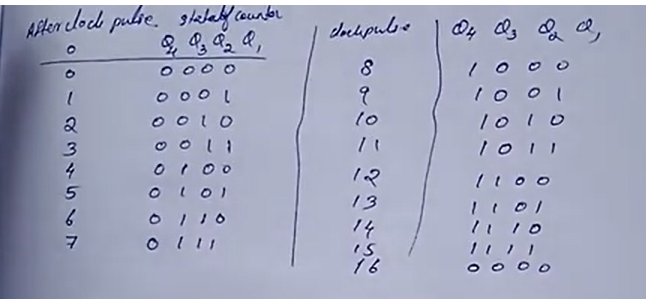 After clock pulse. State of counter
0 Q4 Q3 Q2 Q1
0 0 0 0 0
1 0 0 0 1
2 0 0 1 0
3 0 0 1 1
4 0 1 0 0
5 0 1 0 1
6 0 1 1 0
7 0 1 1 1
clockpulse Q4 Q3 Q2 Q1
8 1 0 0 0
9 1 0 0 1
10 1 0 1 0
11 1 0 1 1
12 1 1 0 0
13 1 1 0 1
14 1 1 1 0
15 1 1 1 1
16 0 0 0 0